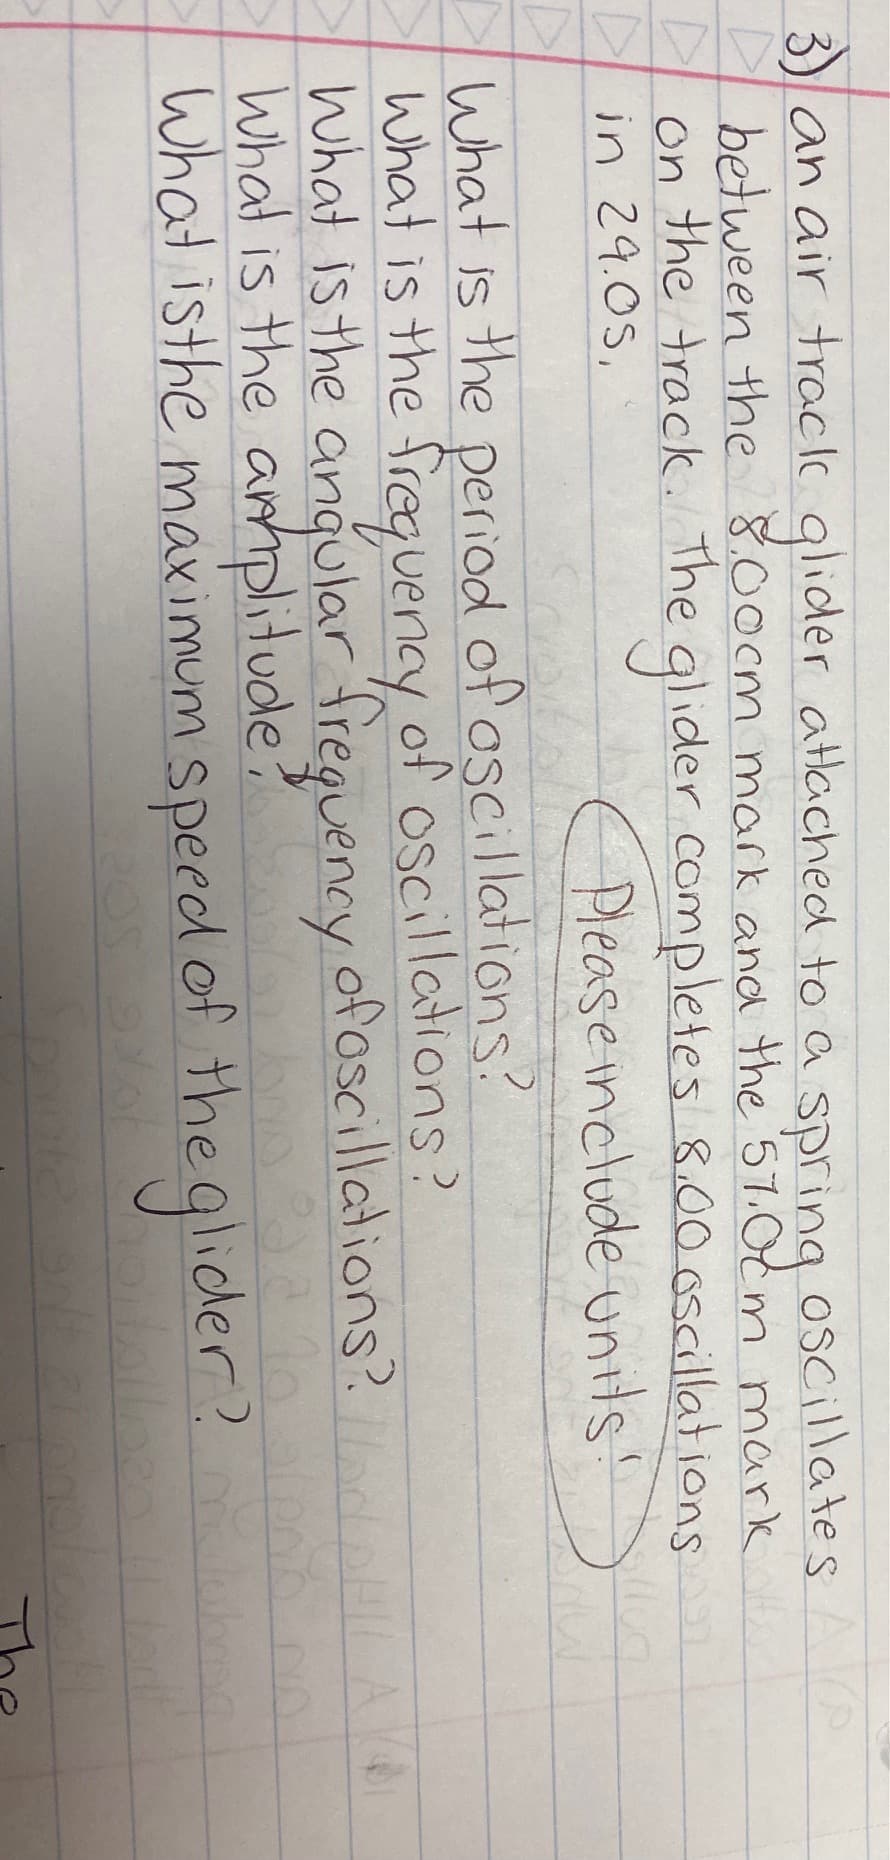 3) an air track glider attached to a spring oscillates
between the 8.00cm mark and the 57.0cm mark
on the track. The glider completes 8.00 oscillations
in 29.0s.
Please include units!
What is the period of oscillations?
What is the frequency of oscillations?
What is the angular frequency of oscillations?
What is the amplitude?
What is the maximum speed of the glider?
The